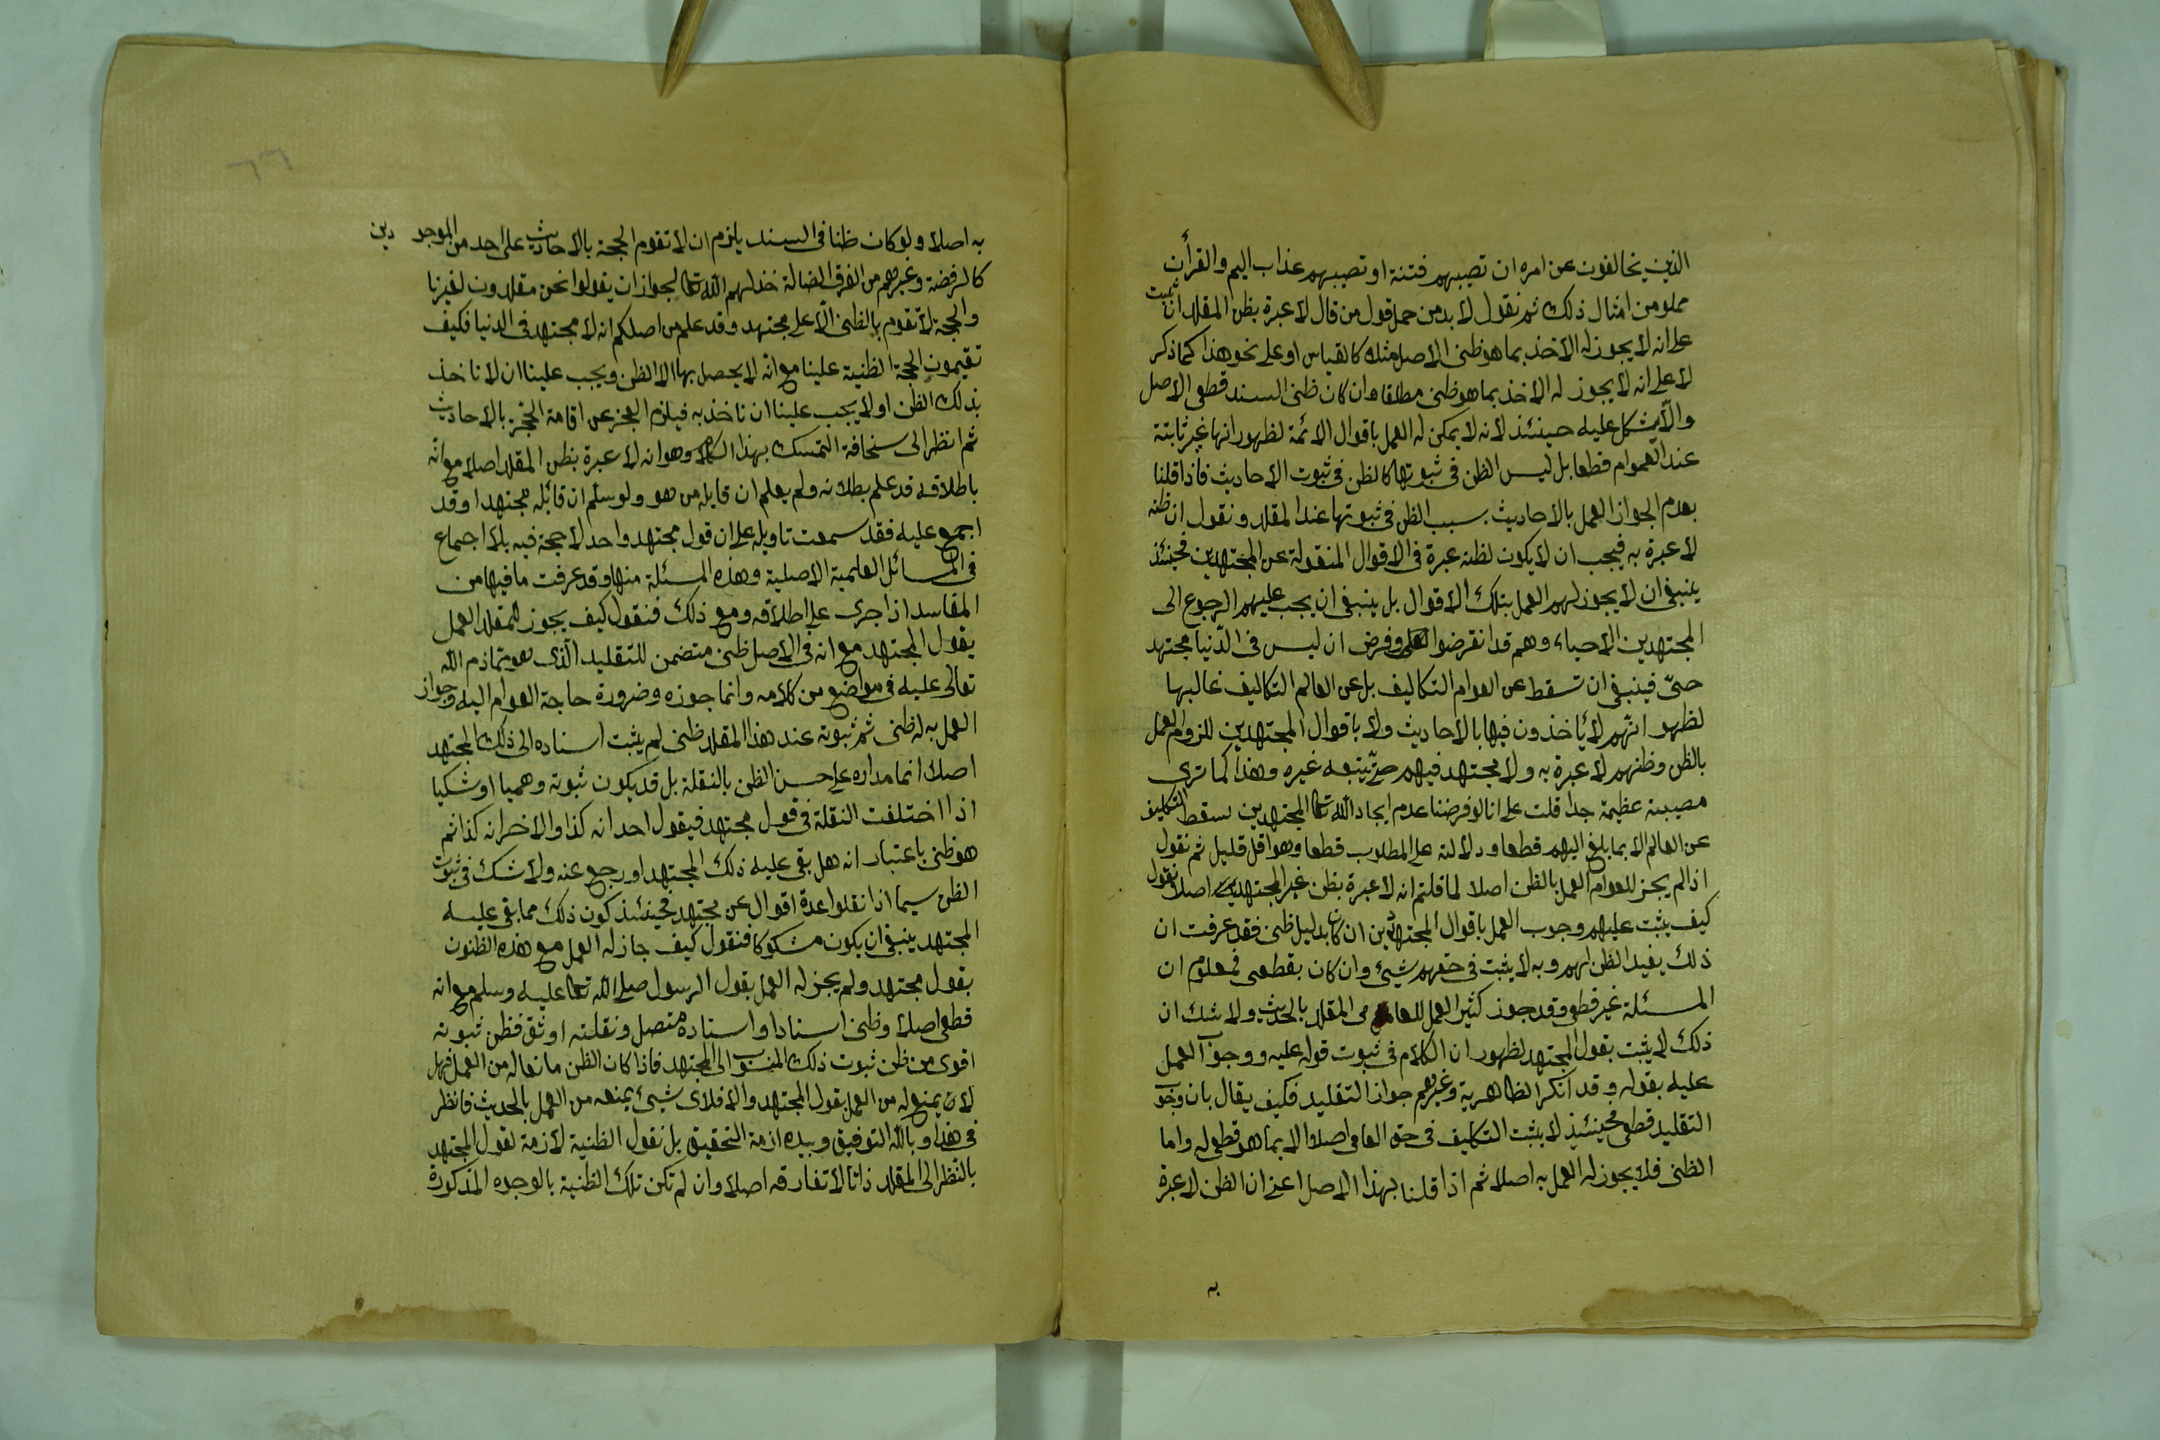 الذين يخالفون عن امره ان تصيبهم فتنة او تصيبهم عذاب اليم والقرأن
مملو من امثال ذلك ثم نقول لا بد من حمل قول من قال لا عبرة بظن المقلد ان ثبت
على انه لا يجوز له الاخذ بما هو ظنى الاصل مثله كالقياس او على نحو هذا كما ذكر
لا على انه لا يجوز له الاخذ بما هو ظنى مطلقا وان كان ظنى السند قطعى الاصل
والا يشكل عليه حينئذ لانه لا يمكن له العمل باقوال الائمة لظهور انها غير ثابتة
عند العموام قطعا بل ليس الظن فى ثبوتها كالظن فى ثبوت الاحاديث فاذا قلنا
بعدم الجواز العمل بالاحاديث بسبب الظن فى ثبوتها عند المقلد ونقول ان ظنه
لا عبرة به فيجب ان لا يكون لظنه عبرة فى الاقوال المنقولة عن المجتهدين فحينئذ
ينبغى ان لا يجوز لهم العمل بتلك الاقوال بل ينبغى ان يجب عليهم الرجوع الى
المجتهدين الاحياء وهم قد انقرضوا وفرض ان ليس فى الدنيا مجتهد
حىّ فينبغى ان تسقط عن العوام التكاليف بل عن العالم التكاليف غالبها
لظهو انهم لا ياخذون فيها بالاحاديث ولا باقوال المجتهدين للزوم العمل
بالظن وظنهم لا عبرة به ولا مجتهد فيهم حتى يتبعه غيره وهذا كما ترى
مصيبة عظيمة جدا قلت على انا لو فرضنا عدم ايجاد الله تعا المجتهدين سقط التكليف
عن العالم الا بما بلغ اليهم قطعا ودلالته على المطلوب قطعا وهو اقل قليل ثم نقول
اذا لم يجز للعوام العمل بالظن اصلا لما قلتم انه لا عبرة بظن غير المجتهدين اصلا نقول
كيف يثبت عليهم وجوب العمل باقوال المجتهدين ان كان بدليل ظنى فقد عرفت ان
ذلك يفيد الظن لهم وبه لا يثبت فى حقهم شيئ وان كان بقطعى فمعلوم ان
المسئلة غير قطعى وقد جوز كثير العمل للعامى المقلد بالحديث ولا شك ان
ذلك لا يثبت بقول المجتهد لظهور ان الكلام فى ثبوت قوله عليه ووجوب العمل
عليه بقوله وقد انكر الظاهرية وغيرهم جواز التقليد فكيف يقال بان وجوب
التقليد قطعى فحينئذ لا يثبت التكليف فى حق العامى اصلا الا بما هو قطعى له واما
الظنى فلا يجوز له العمل به اصلا ثم اذا قلنا بهذا الاصل اعنى ان الظن لا عبرة
به
٦٦
به اصلا ولو كان ظنا فى السند يلزم ان لا تقوم الحجة بالاحاديث على احد من الموجودين
كالرفضة وغيرهم من الفرق الضالة خذلهم الله تعا لجواز ان يقولوا نحن مقلدون لغيرنا
والحجة لا تقوم بالظنى الا على مجتهد وقد علم من اصلكم انه لا مجتهد فى الدنيا فكيف
تقيمون الحجة الظنية علينا مع انه لا يحصل بها الا الظن ويجب علينا ان لا ناخذ
بذلك الظن او لا يجب علينا ان ناخذ به فيلزم العجز عن اقامة الحجة بالاحاديث
ثم انظر الى سخافة التمسك بهذا الكلام وهو انه لا عبرة بظن المقلد اصلا مع انه
باطلاقه قد علم بطلانه ولم يعلم ان قايله من هو ولو سلم ان قائله مجتهد او قد
اجمع عليه فقد سمعت تاويله على ان قول مجتهد واحد لا حجة فيه بلا اجماع
فى المسائل العلمية الاصلية وهذه المسئلة منها وقد عرفت ما فيها من
المفاسد اذا جرى على اطلاقه ومع ذلك فنقول كيف يجوز للمقلد العمل
يقول المجتهد مع انه فى الاصل ظنى متضمن للتقليد الذى هو مما ذم الله
تعالى عليه فى مواضع من كلامه وانما جوزه وضرورة حاجة العوام اليه وجواز
العمل به له ظنى ثم ثبوته عند هذا المقلد ظنى لم يثبت اسناده الى ذلك المجتهد
اصلا انما مداره على حسن الظن بالنقلة بل قد يكون ثبوته وهميا او شكيا
اذا اختلفت النقلة فى قول مجتهد فيقول احد انه كذا والاخر انه كذا ثم
هو ظنى باعتبار انه هل بقى عليه ذلك المجتهد او رجع عنه ولا شك فى ثبوت
الظن سيما اذا نقلوا عدة اقوال عن مجتهد فحينئذ كون ذلك مما بقى عليه
المجتهد ينبغى ان يكون مشكوكا فنقول كيف جاز له العمل مع هذه الظنون
بقول مجتهد ولم يجز له العمل بقول الرسول صلى الله تعا عليه وسلم مع انه
قطعى اصلا وظنى اسنادا واسناده متصل ونقلته اوثق فظن ثبوته
اقوى من ظن ثبوت ذلك المنسوب الى المجتهد فاذا كان الظن مانعا له من العمل فهل
لان يمنع له من العمل بقول المجتهد والا فلاى شيئ يمنعه من العمل بالحديث فانظر
فى هذا وبالله التوفيق وبيده ازمة التحقيق بل نقول الظنية لازمة لقول المجتهد
بالنظر الى المقلد ذاتا لا تفارقه اصلا وان لم تكن تلك الظنية بالوجوه المذكورة